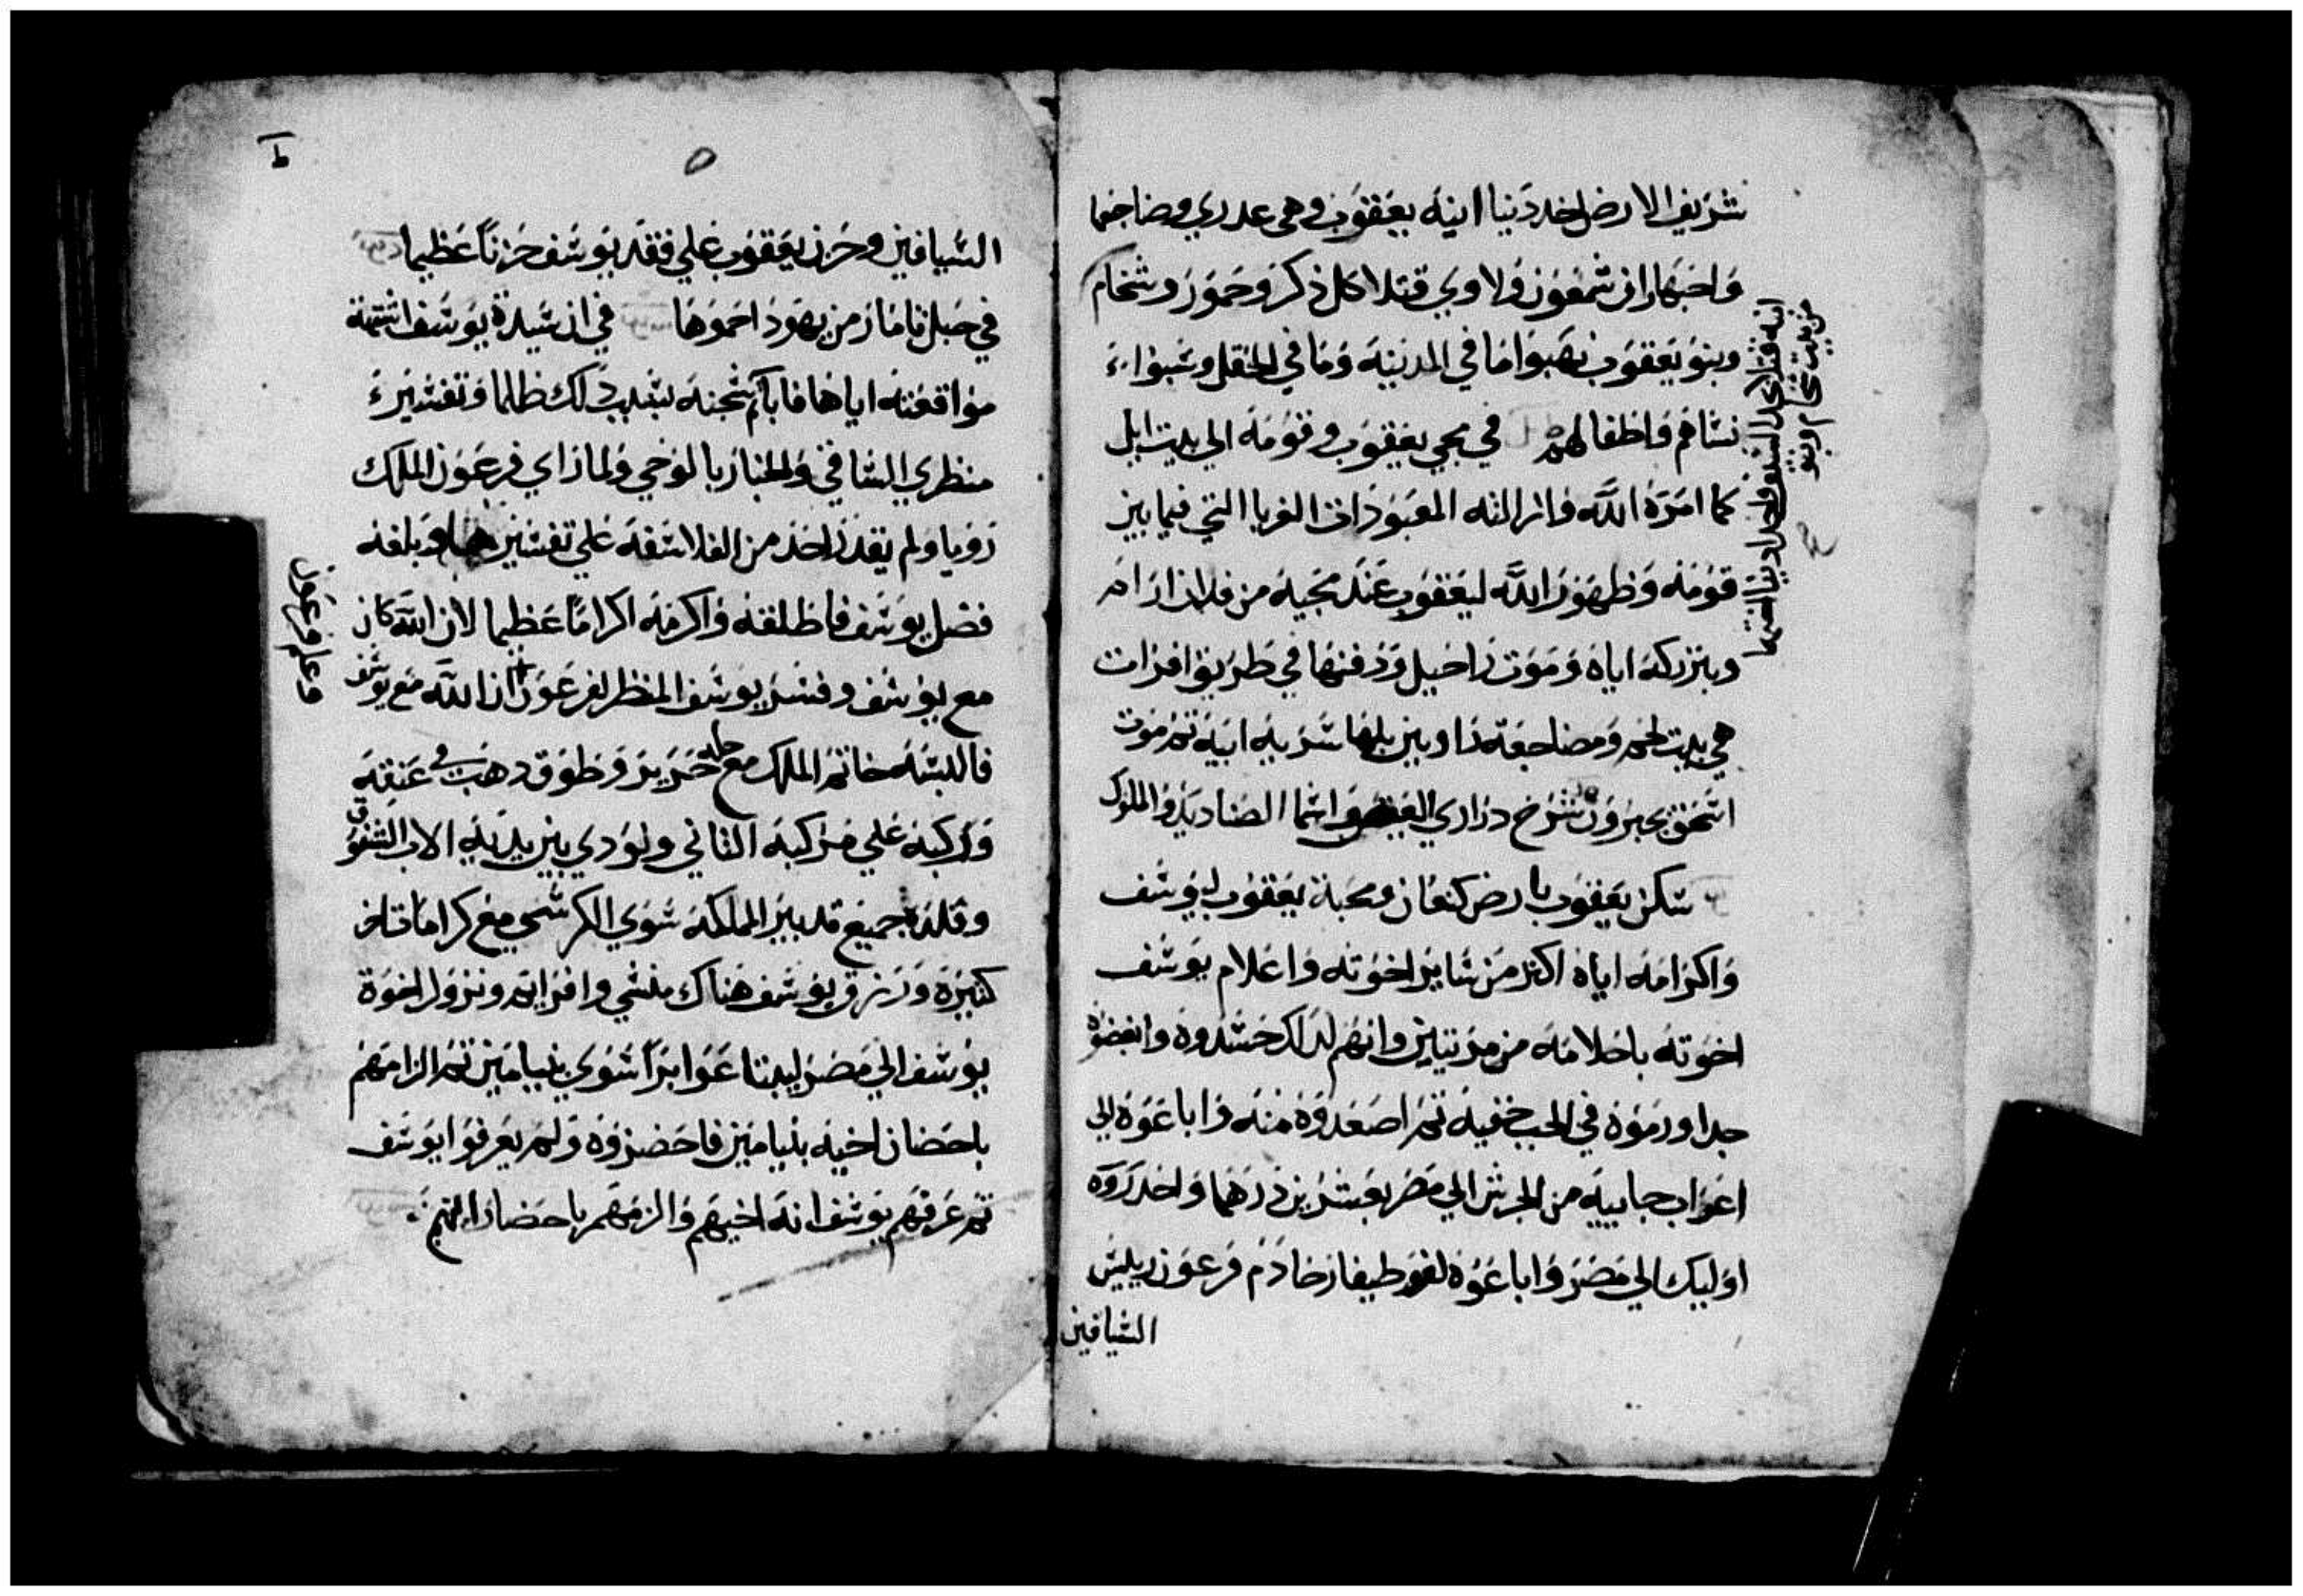 شريف الارض اخد دينا ابنه يعقوب وهي عدري وضاجعها
واخبار ان شمعون ولاوي قتلا كل ذكر وحمور وشخام
وبنو يعقوب نهبوا ما في المدينه وما في الحقل وسبوا
نساهم واطفالهم في مجي يعقوب وقومه الي بيت ايل
كما امره الله وازال اله المعبودات الغربا التي فيما بين
قومه وظهور الله ليعقوب عند مجيه من فدان ارام
وبتركه اياه وموت راحيل ودفنها في طريق افرات
هي بيت لحم ومضاجعة راوبين بلها سريه ابيه ثم موت
اسحق بحبرون شرح دراري العيص واسما الصناديد والملوك
سكن يعقوب بارض كنعان ومحبة يعقوب ليوسف
واكرامه اياه اكتر من ساير اخوته واعلام يوسف
اخوته باحلامه من مرتين وانهم لدلك حسدوه وابغضوه
جدا ورموه في الجب خفيه ثم اصعدوه منه واباعوه الي
اعراب جاييه من الجرش الي مصر بعشرين درهما واحدروه
اوليك الي مصر واباعوه لفوطيفار خادم فرعون ريس
السيافين
ابنه قتلا كل
من بيت شخام وبنو
ط
٥
السيافين وحزن يعقوب علي فقد يوسف حزنا عظيما
في حبل تامار من يهودا حموها في ان سيدة يوسف اشتهة
مواقعته اياها فابا ثم سجنه بسبب دلك ظالما وتفسيره
منظري الساقي والخباز بالوحي ولما راي فرعون الملك
رويا ولم يقدر احد من الفلاسفه علي تفسيرها وبلغه
فضل يوسف فاطلقه واكرمه اكراما عظيما لان الله كان
مع يوسف وفسر يوسف المنظر لفرعون ان الله مع يوسف
وعلم فرعون
فالبسه خاتم الملك مع حله حرير وطوق دهب في عنقه
واركبه علي مركبه التاني ونودي بين يديه الاب الشفوق
وقلده جميع تدبير المملكه سوي الكرسي مع كرامات اخر
كتيره ورزق يوسف هناك منسي وافرايم ونزول اخوة
يوسف الي مصر ليبتاعوا برا سوي بنيامين ثم الزامهم
باحضار اخيه بنيامين فاحضروه ولم يعرفوا يوسف
ثم عرفهم يوسف انه اخيهم والزمهم باحضار ابيهم